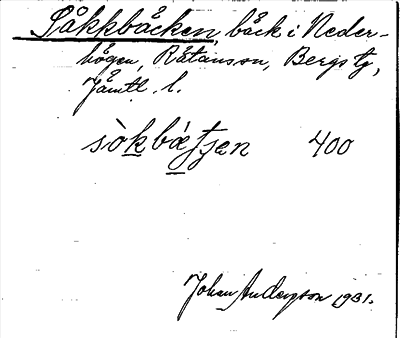 Såkkbäcken, bäck i Neder-
högen, Råtanson, Bergs tg,
Jämtl. l.
sòkbǽʃʃen 400
Johan Anderson 1931.